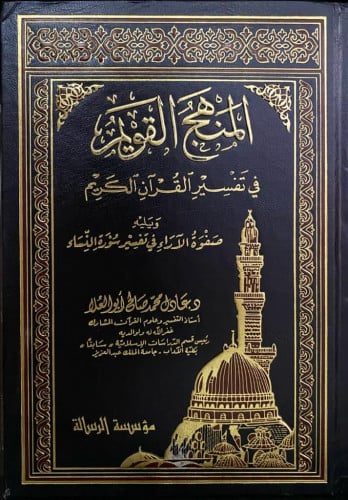 المنهج القويم
في تفسير القرآن الكريم
ويليه
صفوة الآراء في تفسير سورة النساء
د. عادل محمد صالح أبو العلا
أستاذ التفسير وعلوم القرآن المشارك
غفر الله له ولوالديه
رئيس قسم الدراسات الإسلامية "سابقًا"
بكلية الآداب - جامعة الملك عبد العزيز
مؤسسة الرسالة